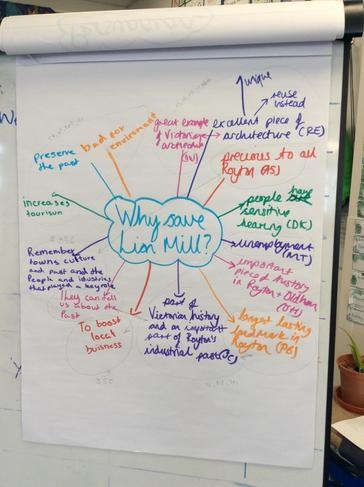 unique
reuse
instead
bad for
environment
great example
of Victorian
architecture
excellent piece of
architecture (RE)
preserve
the past
precious to all
Royton (AS)
increases
tourism
Why save
Lion Mill?
people have
sensitive
hearing (DK)
unemployment
(MT)
Remember
towns culture
and past and the
People and industries
that played a key role
important
piece of history
in Royton + Oldham
They can tell
us about the
Past
To boost
local
buisness
part of
Victorian history
and an important
part of Royton's
industrial past
largest lasting
landmark in
Royton